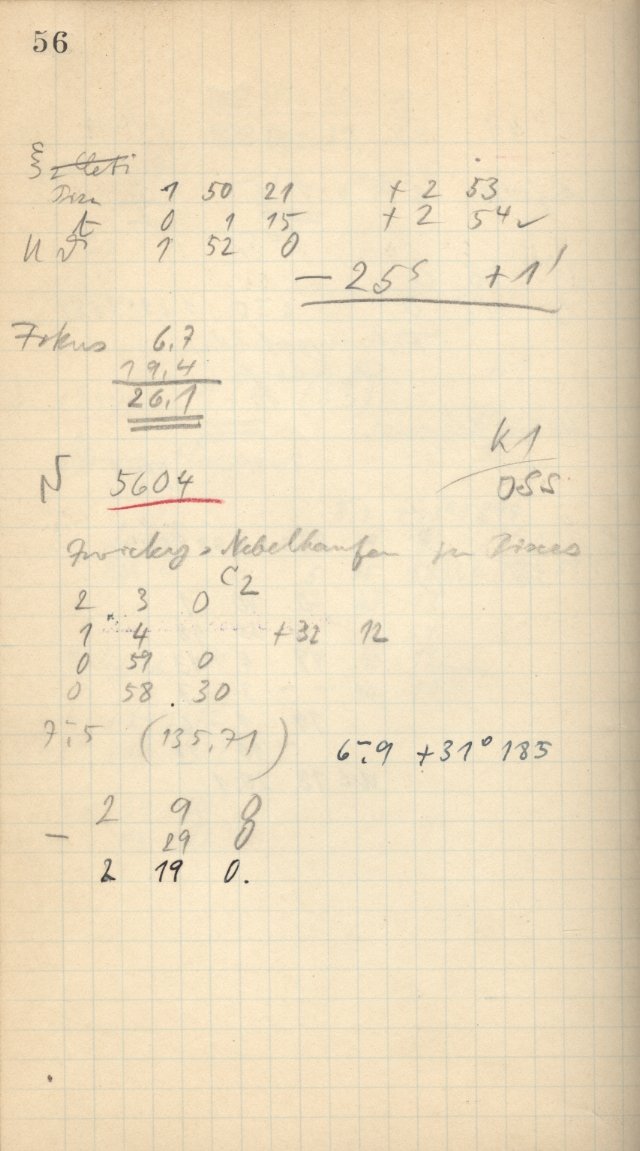 56
ξ
1 50 21 + 2 53
t 0 1 15 + 2 54 ✓
1 52 0
− 25ˢ + 1'
Fokus 6,7
19,4
26,1
K1
N 5604
OSS
Zwicky's Nebelhaufen in Pisces
C2
2 3 0
1 4 +32 12
0 59 0
0 58 30
7,5 (135,71) 6,9 +31° 185
2 9 0
− 29 0
2 19 0.